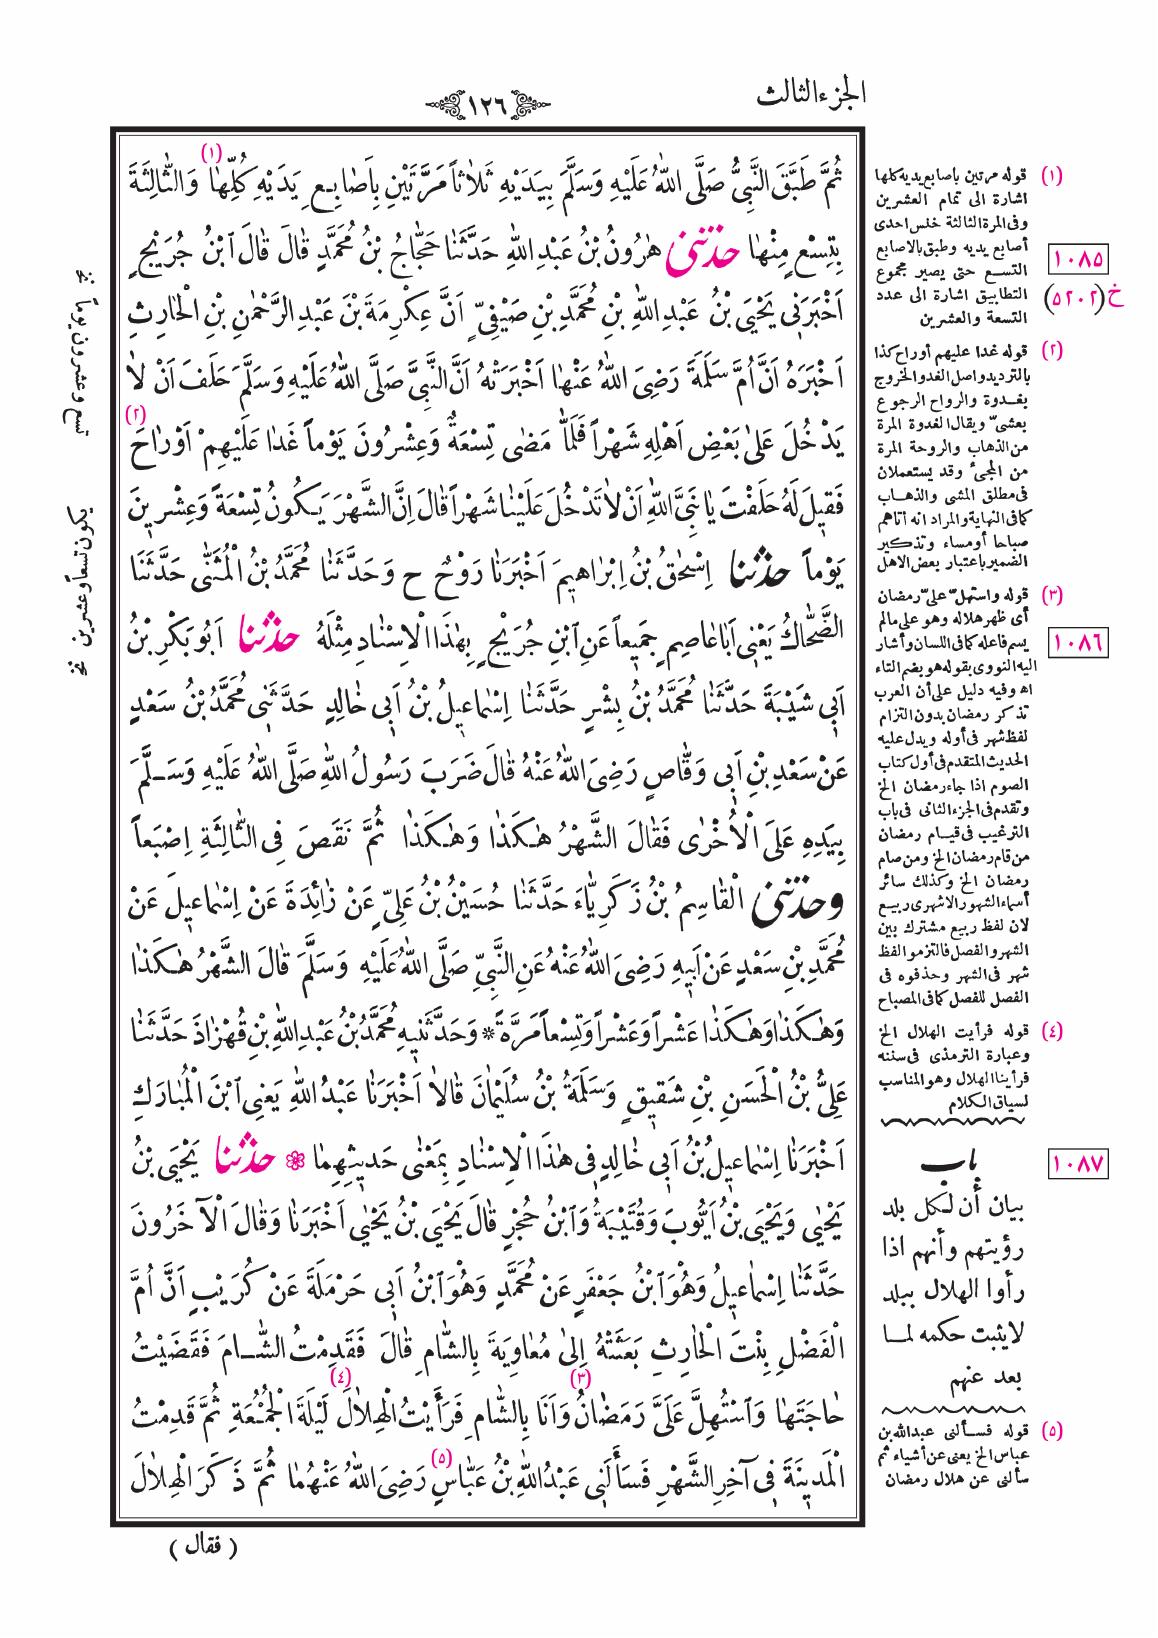 الجزء الثالث
١٢٦
ثُمَّ طَبَّقَ النَّبِيُّ صَلَّى اللّٰهُ عَلَيْهِ وَسَلَّمَ بِيَدَيْهِ ثَلاٰثاً مَرَّتَيْنِ بِاَصَابِعِ يَدَيْهِ كُلِّهَا (١) وَالثَّالِثَةَ
بِتِسْعٍ مِنْهَا حَدَّثَنِى هٰرُونُ بْنُ عَبْدِ اللّٰهِ حَدَّثَنَا حَجَّاجُ بْنُ مُحَمَّدٍ قَالَ قَالَ ٱبْنُ جُرَيْجٍ
اَخْبَرَنِى يَحْيَى بْنُ عَبْدِ اللّٰهِ بْنِ مُحَمَّدِ بْنِ صَيْفِىٍّ اَنَّ عِكْرِمَةَ بْنَ عَبْدِ الرَّحْمٰنِ بْنِ الْحَارِثِ
اَخْبَرَهُ اَنَّ اُمَّ سَلَمَةَ رَضِىَ اللّٰهُ عَنْهَا اَخْبَرَتْهُ اَنَّ النَّبِىَّ صَلَّى اللّٰهُ عَلَيْهِ وَسَلَّمَ حَلَفَ اَنْ لاٰ
يَدْخُلَ عَلىٰ بَعْضِ اَهْلِهِ شَهْراً فَلَمَّا مَضٰى تِسْعَةٌ وَعِشْرُونَ يَوْماً غَدَا عَلَيْهِمْ اَوْرَاحَ (٢)
فَقِيلَ لَهُ حَلَفْتَ يَا نَبِىَّ اللّٰهِ اَنْ لاٰ تَدْخُلَ عَلَيْنَا شَهْراً قَالَ اِنَّ الشَّهْرَ يَكُونُ تِسْعَةً وَعِشْرِينَ
يَوْماً حَدَّثَنَا اِسْحٰقُ بْنُ اِبْرَاهِيمَ اَخْبَرَنَا رَوْحٌ ح وَحَدَّثَنَا مُحَمَّدُ بْنُ الْمُثَنّٰى حَدَّثَنَا
الضَّحَّاكُ يَعْنِى اَبَا عَاصِمٍ جَمِيعاً عَنِ ابْنِ جُرَيْجٍ بِهٰذَا الْاِسْنَادِ مِثْلَهُ حَدَّثَنَا اَبُو بَكْرِ بْنُ
اَبِى شَيْبَةَ حَدَّثَنَا مُحَمَّدُ بْنُ بِشْرٍ حَدَّثَنَا اِسْمَاعِيلُ بْنُ اَبِى خَالِدٍ حَدَّثَنِى مُحَمَّدُ بْنُ سَعْدٍ
عَنْ سَعْدِ بْنِ اَبِى وَقَّاصٍ رَضِىَ اللّٰهُ عَنْهُ قَالَ ضَرَبَ رَسُولُ اللّٰهِ صَلَّى اللّٰهُ عَلَيْهِ وَسَلَّمَ
بِيَدِهِ عَلَى الْاُخْرٰى فَقَالَ الشَّهْرُ هٰكَذَا وَهٰكَذَا ثُمَّ نَقَصَ فِى الثَّالِثَةِ اِصْبَعاً
وحَدَّثَنِى الْقَاسِمُ بْنُ زَكَرِيَّاءَ حَدَّثَنَا حُسَيْنُ بْنُ عَلِىٍّ عَنْ زَائِدَةَ عَنْ اِسْمَاعِيلَ عَنْ
مُحَمَّدِ بْنِ سَعْدٍ عَنْ اَبِيهِ رَضِىَ اللّٰهُ عَنْهُ عَنِ النَّبِىِّ صَلَّى اللّٰهُ عَلَيْهِ وَسَلَّمَ قَالَ الشَّهْرُ هٰكَذَا
وَهٰكَذَا وَهٰكَذَا عَشْراً وَعَشْراً وَتِسْعاً مَرَّةً * وَحَدَّثَنِيهِ مُحَمَّدُ بْنُ عَبْدِ اللّٰهِ بْنِ قُهْزَاذَ حَدَّثَنَا
عَلِىُّ بْنُ الْحَسَنِ بْنِ شَقِيقٍ وَسَلَمَةُ بْنُ سُلَيْمَانَ قَالاَ اَخْبَرَنَا عَبْدُ اللّٰهِ يَعْنِى ابْنَ الْمُبَارَكِ
اَخْبَرَنَا اِسْمَاعِيلُ بْنُ اَبِى خَالِدٍ فِى هٰذَا الْاِسْنَادِ بِمَعْنٰى حَدِيثِهِمَا ۞ حَدَّثَنَا يَحْيَى بْنُ
يَحْيٰى وَيَحْيَى بْنُ اَيُّوبَ وَقُتَيْبَةُ وَٱبْنُ حُجْرٍ قَالَ يَحْيَى بْنُ يَحْيٰى اَخْبَرَنَا وَقَالَ الْآخَرُونَ
حَدَّثَنَا اِسْمَاعِيلُ وَهُوَ ٱبْنُ جَعْفَرٍ عَنْ مُحَمَّدٍ وَهُوَ ٱبْنُ اَبِى حَرْمَلَةَ عَنْ كُرَيْبٍ اَنَّ اُمَّ
الْفَضْلِ بِنْتَ الْحَارِثِ بَعَثَتْهُ اِلىٰ مُعَاوِيَةَ بِالشَّامِ قَالَ فَقَدِمْتُ الشَّامَ فَقَضَيْتُ
حَاجَتَهَا وَٱسْتُهِلَّ عَلَىَّ رَمَضَانُ (٣) وَاَنَا بِالشَّامِ فَرَأَيْتُ الْهِلاَلَ (٤) لَيْلَةَ الْجُمُعَةِ ثُمَّ قَدِمْتُ
الْمَدِينَةَ فِى آخِرِ الشَّهْرِ فَسَأَلَنِى عَبْدُ اللّٰهِ بْنُ عَبَّاسٍ (٥) رَضِىَ اللّٰهُ عَنْهُمَا ثُمَّ ذَكَرَ الْهِلاَلَ
( فقال )
(١) قوله مرتين بأصابع يديه كلها
اشارة الى تمام العشرين
وفى المرة الثالثة خنس احدى
أصابع يديه وطبق بالاصابع
التسع حتى يصير مجموع
التطابيق اشارة الى عدد
التسعة والعشرين
١٠٨٥
خ (٥٢٠٢)
(٢) قوله غدا عليهم أوراح كذا
بالترديد واصل الغدو الخروج
بغدوة والرواح الرجوع
بعشىّ ويقال الغدوة المرة
من الذهاب والروحة المرة
من المجىء وقد يستعملان
فى مطلق المشى والذهاب
كما فى النهاية والمراد انه أتاهم
صباحا أو مساء وتذكير
الضمير باعتبار بعض الاهل
(٣) قوله واستهلّ علىّ رمضان
أى ظهر هلاله وهو على مالم
يسم فاعله كما فى اللسان وأشار
اليه النووى بقوله هو بضم التاء
اه وفيه دليل على أن العرب
تذكر رمضان بدون التزام
لفظ شهر فى أوله ويدل عليه
الحديث المتقدم فى أول كتاب
الصوم اذا جاء رمضان الخ
وتقدم فى الجزء الثانى فى باب
الترغيب فى قيام رمضان
من قام رمضان الخ ومن صام
رمضان الخ وكذلك سائر
أسماء الشهور الا شهرى ربيع
لان لفظ ربيع مشترك بين
الشهر والفصل فالتزموا لفظ
شهر فى الشهر وحذفوه فى
الفصل للفصل كما فى المصباح
١٠٨٦
(٤) قوله فرأيت الهلال الخ
وعبارة الترمذى فى سننه
فرأينا الهلال وهو المناسب
لسياق الكلام
١٠٨٧
باب
بيان أن لكل بلد
رؤيتهم وأنهم اذا
رأوا الهلال ببلد
لا يثبت حكمه لما
بعد عنهم
(٥) قوله فسألنى عبدالله بن
عباس الخ يعنى عن أشياء ثم
سألنى عن هلال رمضان
تسع وعشرون يوماً نخ
يكون تسعاً وعشرين نخ